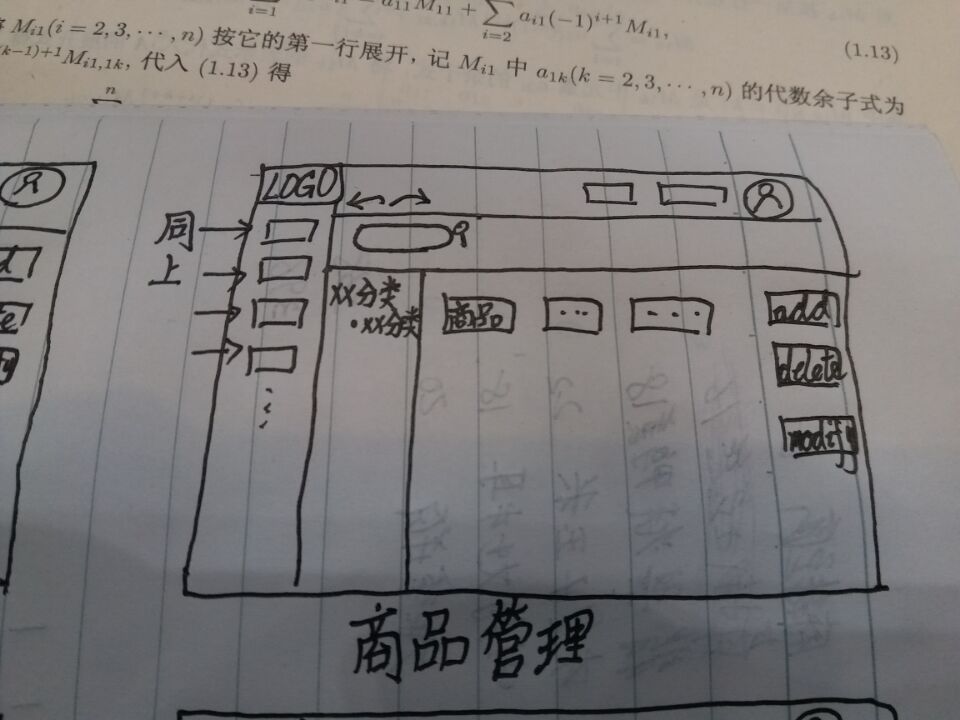 a₁₁M₁₁ + ∑ᵢ₌₂ aᵢ₁(−1)ⁱ⁺¹Mᵢ₁,
(1.13)
Mᵢ₁(i = 2, 3, ⋯, n) 按它的第一行展开, 记 Mᵢ₁ 中 a₁ₖ(k = 2, 3, ⋯, n) 的代数余子式为
(k−1)+1 Mᵢ₁,₁ₖ, 代入 (1.13) 得
n
LOGO
同
上
XX分类
·XX分类
商品
...
...
add
delete
modify
商品管理